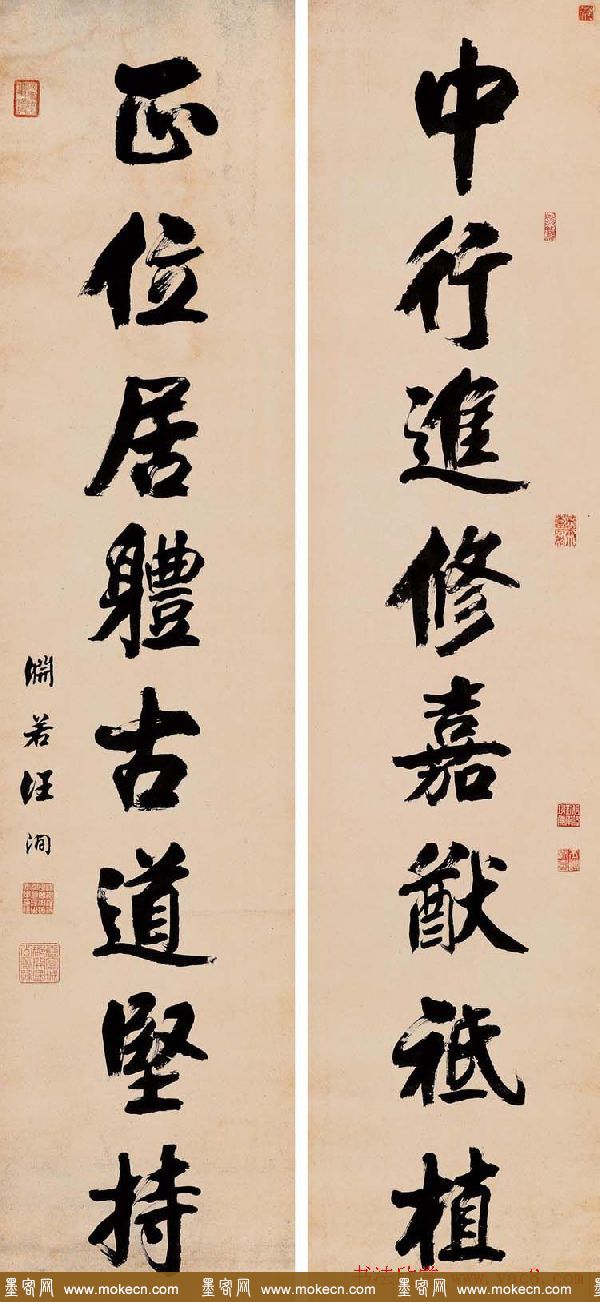 中行進修嘉猷祗植
正位居體古道堅持
淵若汪洵
書法欣賞
墨客网 www.mokecn.com 墨客网 www.mokecn.com 墨客网 www.mokecn.com